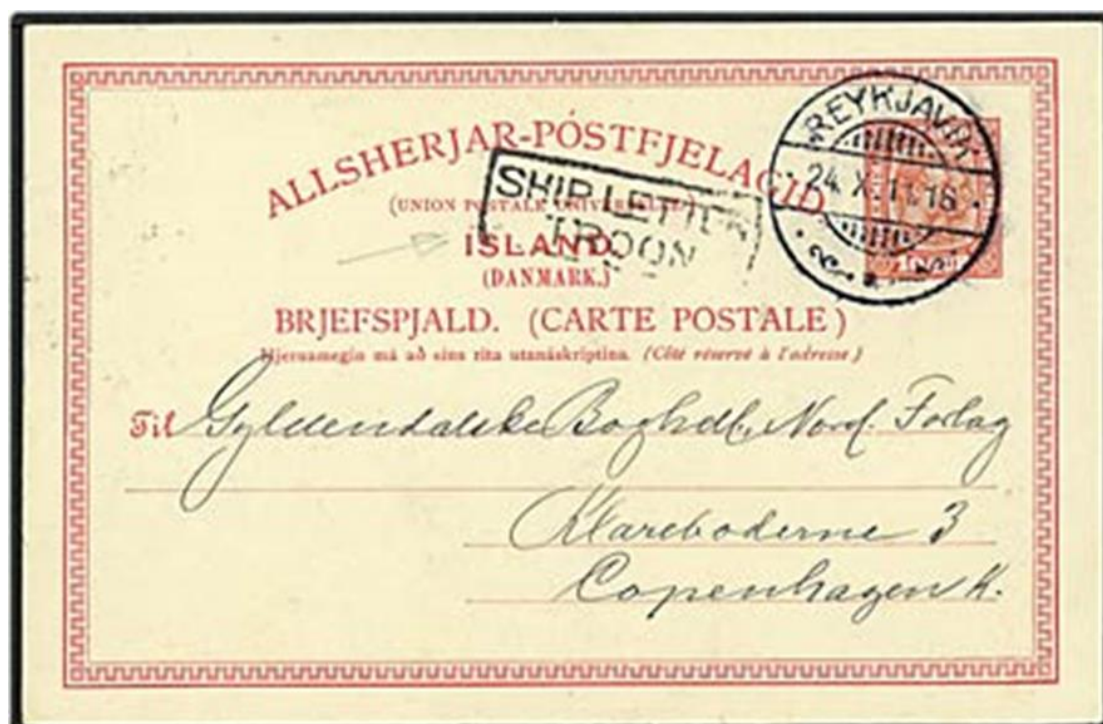 ALLSHERJAR-PÓSTFJELAGIÐ
(UNION POSTALE UNIVERSELLE)
SHIP LETTER
TROON
REYKJAVIK
24. X. 11. 18
ÍSLAND.
(DANMARK.)
BRJEFSPJALD. (CARTE POSTALE)
Hjernamegin má að eins rita utanáskriptina. (Côté réservé à l'adresse)
Til Gyldendalske Boghdl., Nord. Forlag
Klareboderne 3
Copenhagen K.